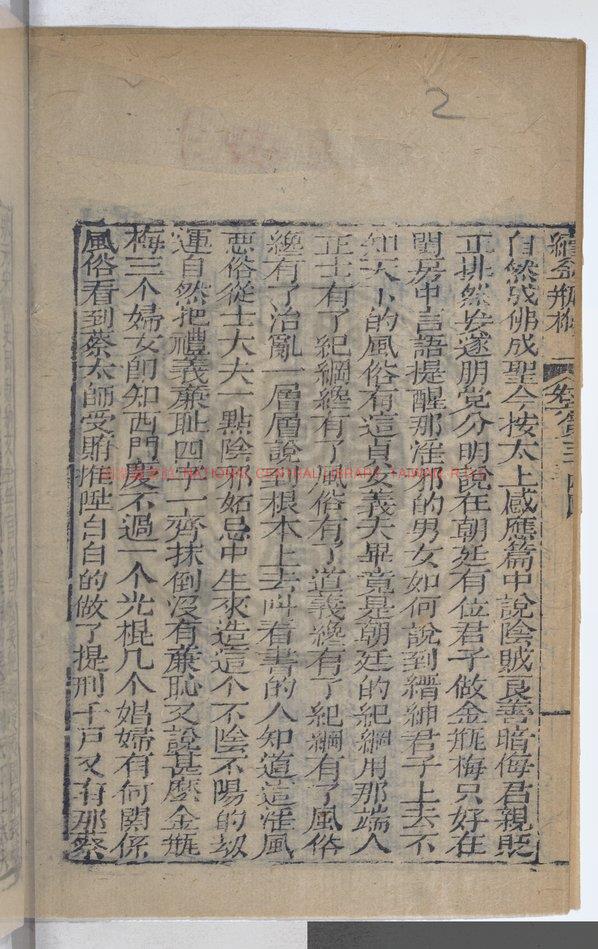 2
續金瓶梅
自然成佛成聖今按太上感應篇中說陰賊良善暗侮君親貶
正排賢妄逐朋党分明說在朝廷有位君子做金瓶梅只好在
閨房中言語提醒那淫邪的男女如何說到縉紳君子上去不
知天下的風俗有這貞女義夫畢竟是朝廷的紀綱用那端人
正士有了紀綱纔有了風俗有了道義纔有了紀綱有了風俗
纔有了治亂一層層說到根本上去叫看書的人知道這淫風
惡俗從士大夫一點陰邪妬忌中生來造這个不陰不陽的劫
運自然把禮義廉恥四字一齊抹倒沒有廉恥又說甚麽金瓶
梅三个婦女即如西門慶不過一个光棍几个娼婦有何關係
風俗看到蔡太師受賄推陞白白的做了提刑千戶又有那蔡
國家圖書館 NATIONAL CENTRAL LIBRARY, TAIWAN R.O.C